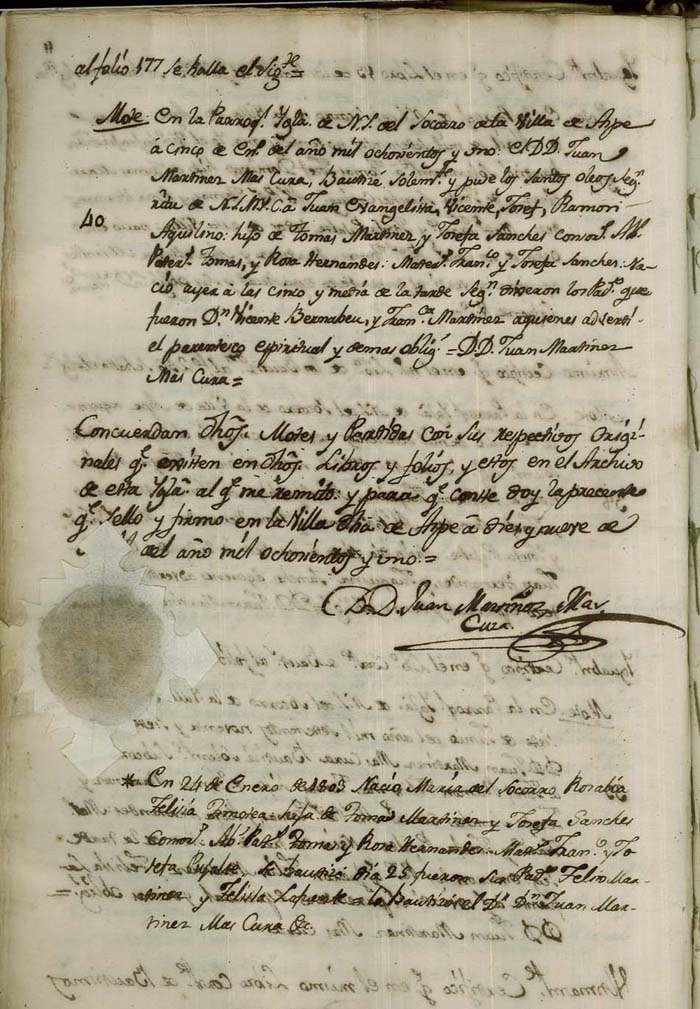 11
al folio 177 se halla el sigte=
Mote: En la Parroql. Ygla. de N.S. del Socorro de la Villa de Aspe
á cinco de En.º del año mil ochocientos y uno: el D.D. Juan
Martinez Mas Cura, Bautizé solemte. y puse los santos oleos seg.n
ritu de N.S.M.Y.C. á Juan Evangelista, Vicente, Josef, Ramon
40
Aquilino: hijo de Tomas Martinez, y Josefa Sanches Consor.s Ab.s
Pater.s Tomas, y Rosa Hernandes: Mater.s Fran.co y Josefa Sanches: Na-
ció ayer á las cinco y media de la tarde seg.n dixeron los Pad.s que
fueron D.n Vicente Bernabeu, y Fran.ca Martinez aquienes adverti
el parentesco espiritual y demas oblig.s = D.D. Juan Martinez
Mas Cura =
Concuerdan dhos. Motes y Partidas con sus respectivos Origi-
nales q.e existen en dhos. Libros y folios, y estos en el Archivo
de esta Ygla. al q.e me remito: y para q.e conste doy la precente
q.e sello y firmo en la Villa dha. de Aspe á dies y nueve de
del año mil ochocientos y uno. =
D.D. Juan Martinez Mas
Cura.
* En 24 de Enero de 1803 Nació María del Socorro Rosalia
Felisia Timotea hija de Tomas Martinez y Josefa Sanches
Consor.s Ab.s Pat.s Tomas y Rosa Hernandes: Mat.s Fran.co y Jo-
sefa se Bautizo dia 25 fueron sus Pad.s Felix Mar-
tinez y Felisia Lafuente = la Bautizó el D.r D.n Juan Mar-
tinez Mas Cura &c.